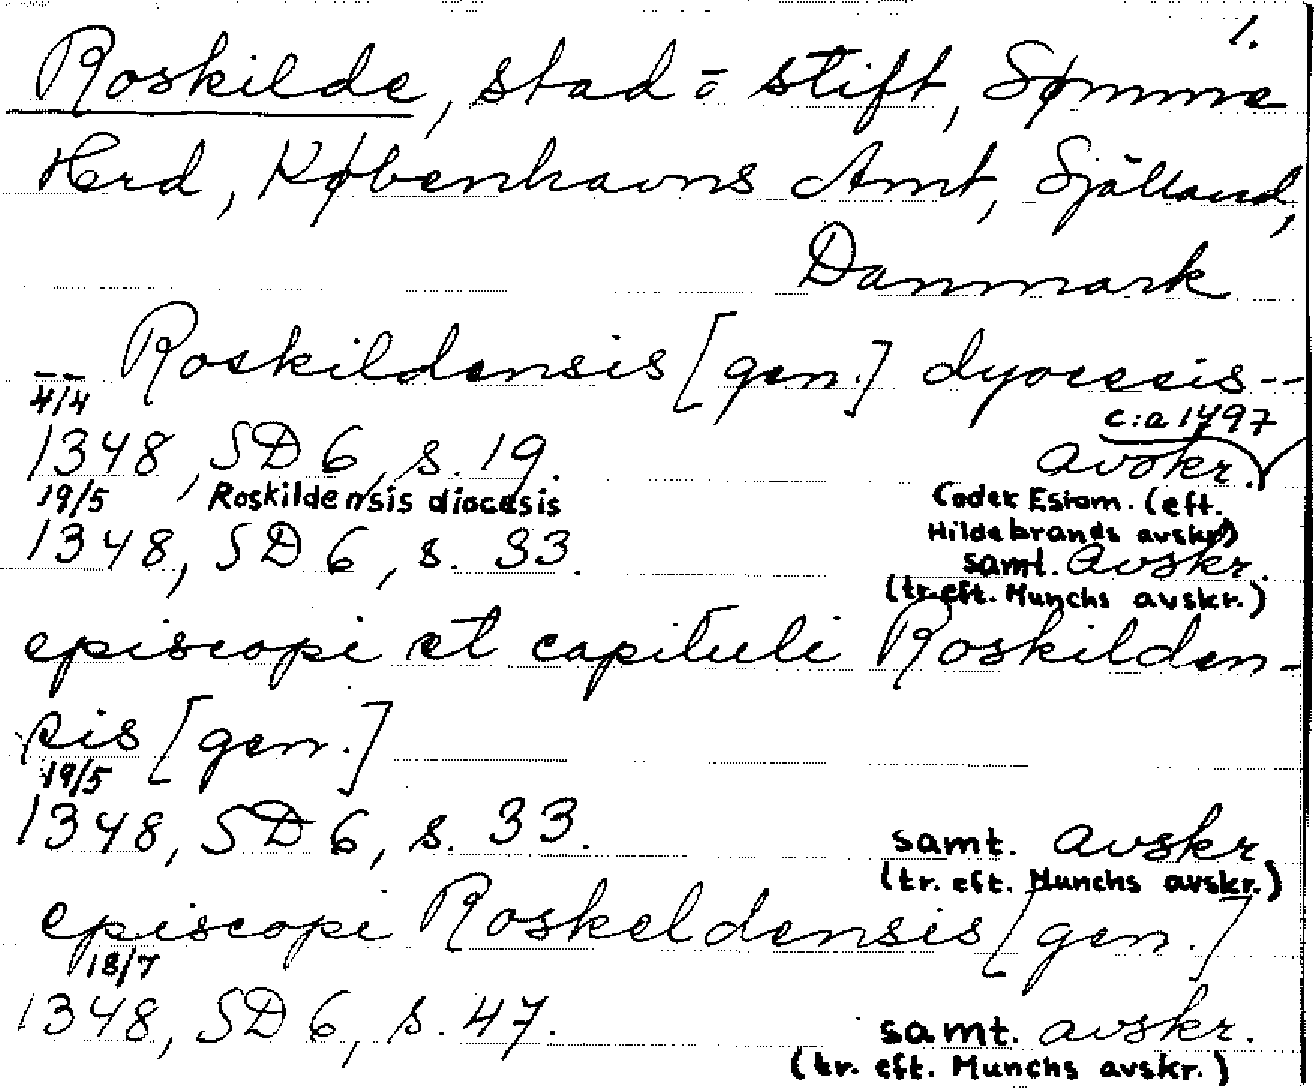 1.
Roskilde, stad o stift, Sømme
Herd, Københavns Amt, Sjælland,
Danmark
Roskildensis [gen.] dyocesis --
4/4 c:a 1497
1348, SD 6, s. 19. avskr.
19/5 Roskildensis diocesis Codex Esrom. (eft.
Hildebrands avskr.)
1348, SD 6, s. 33. samt. avskr.
(tr. eft. Munchs avskr.)
episcopi et capituli Roskilden-
sis [gen.]
19/5
1348, SD 6, s. 33. samt. avskr
(tr. eft. Munchs avskr.)
episcopi Roskeldensis [gen.]
18/7
1348, SD 6, s. 47. samt. avskr.
(tr. eft. Munchs avskr.)